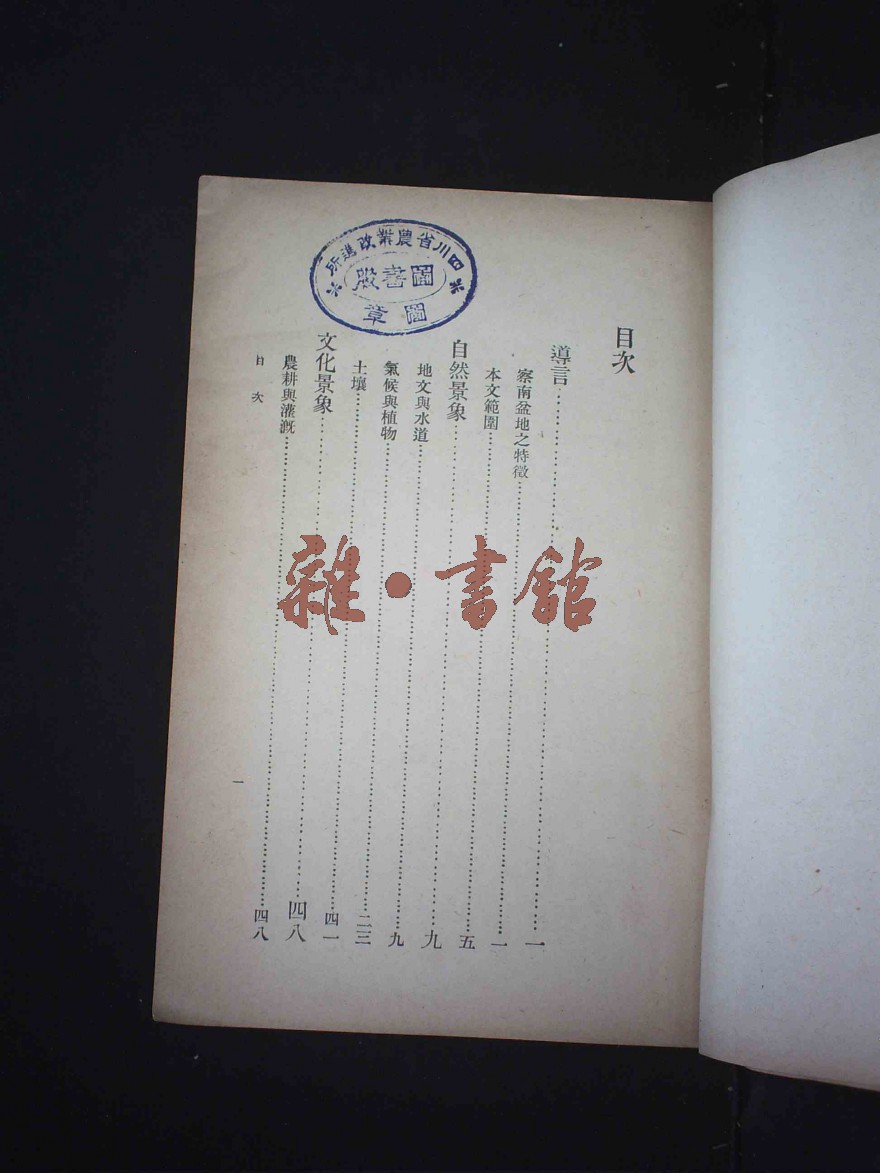 目次
導言……一
察南盆地之特徵……一
本文範圍……五
自然景象……九
地文與水道……九
氣候與植物……二三
土壤……四一
文化景象……四八
農耕與灌漑……四八
目次
一
四川省農業改進所
圖書股
圖章
雜·書館